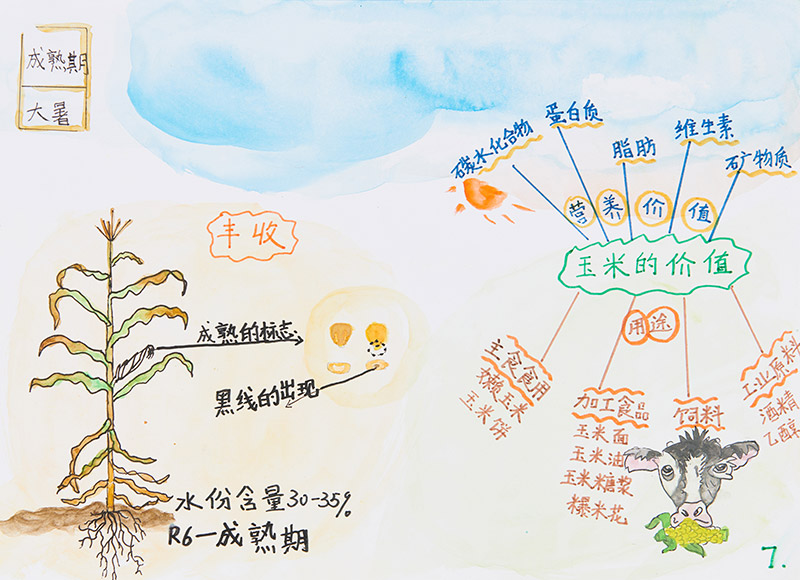 成熟期
大暑
丰收
成熟的标志:
黑线的出现
水份含量30-35%
R6—成熟期
碳水化合物
蛋白质
脂肪
维生素
矿物质
营养价值
玉米的价值
用途
主食食用
嫩玉米
玉米饼
加工食品
玉米面
玉米油
玉米糖浆
爆米花
饲料
工业原料
酒精
乙醇
7.